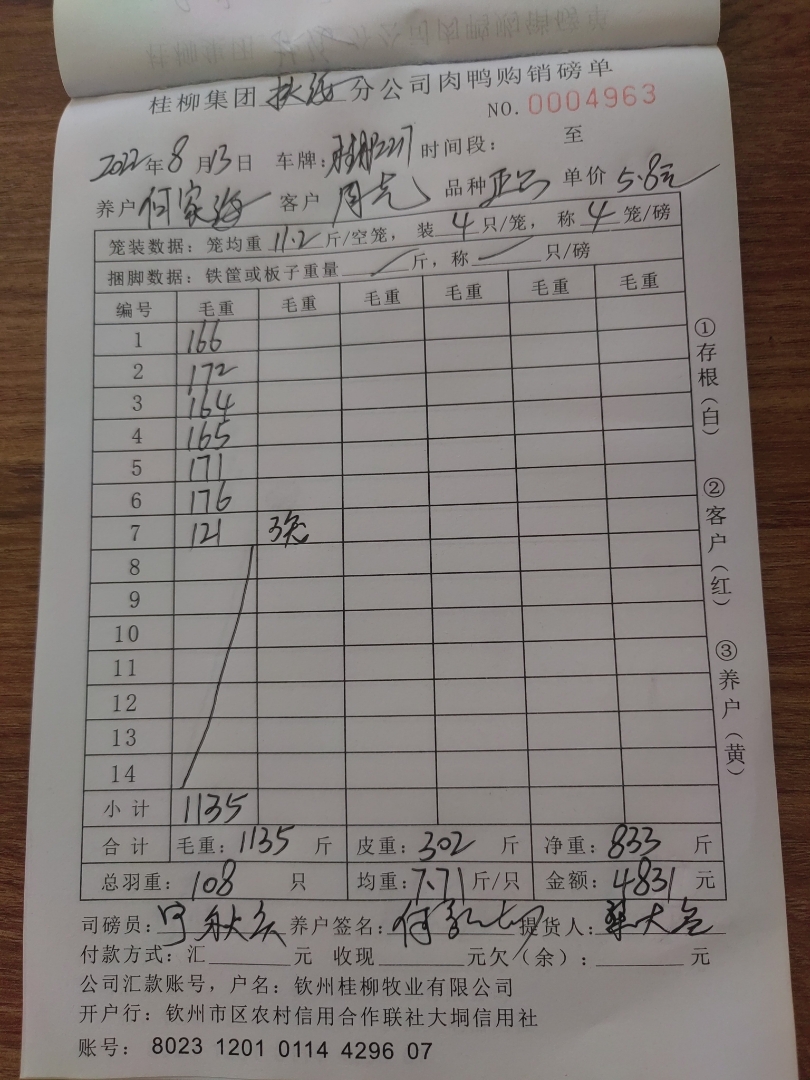 桂柳集团 分公司肉鸭购销磅单
NO. 0004963
2022年8月13日 车牌: 时间段: 至
养户 何家海 客户 周亮 品种 单价 5.8元
笼装数据: 笼均重 11.2 斤/空笼, 装 4 只/笼, 称 4 笼/磅
捆脚数据: 铁筐或板子重量 斤, 称 只/磅
编号 毛重 毛重 毛重 毛重 毛重 毛重
1 166
2 172
3 164
4 165
5 171
6 176
7 121 3笼
8
9
10
11
12
13
14
小计 1135
合计 毛重: 1135 斤 皮重: 302 斤 净重: 833 斤
总羽重: 108 只 均重: 7.71 斤/只 金额: 4831 元
司磅员: 养户签名: 提货人:
付款方式: 汇 元 收现 元欠(余): 元
公司汇款账号, 户名: 钦州桂柳牧业有限公司
开户行: 钦州市区农村信用合作联社大垌信用社
账号: 8023 1201 0114 4296 07
①存根(白)
②客户(红)
③养户(黄)